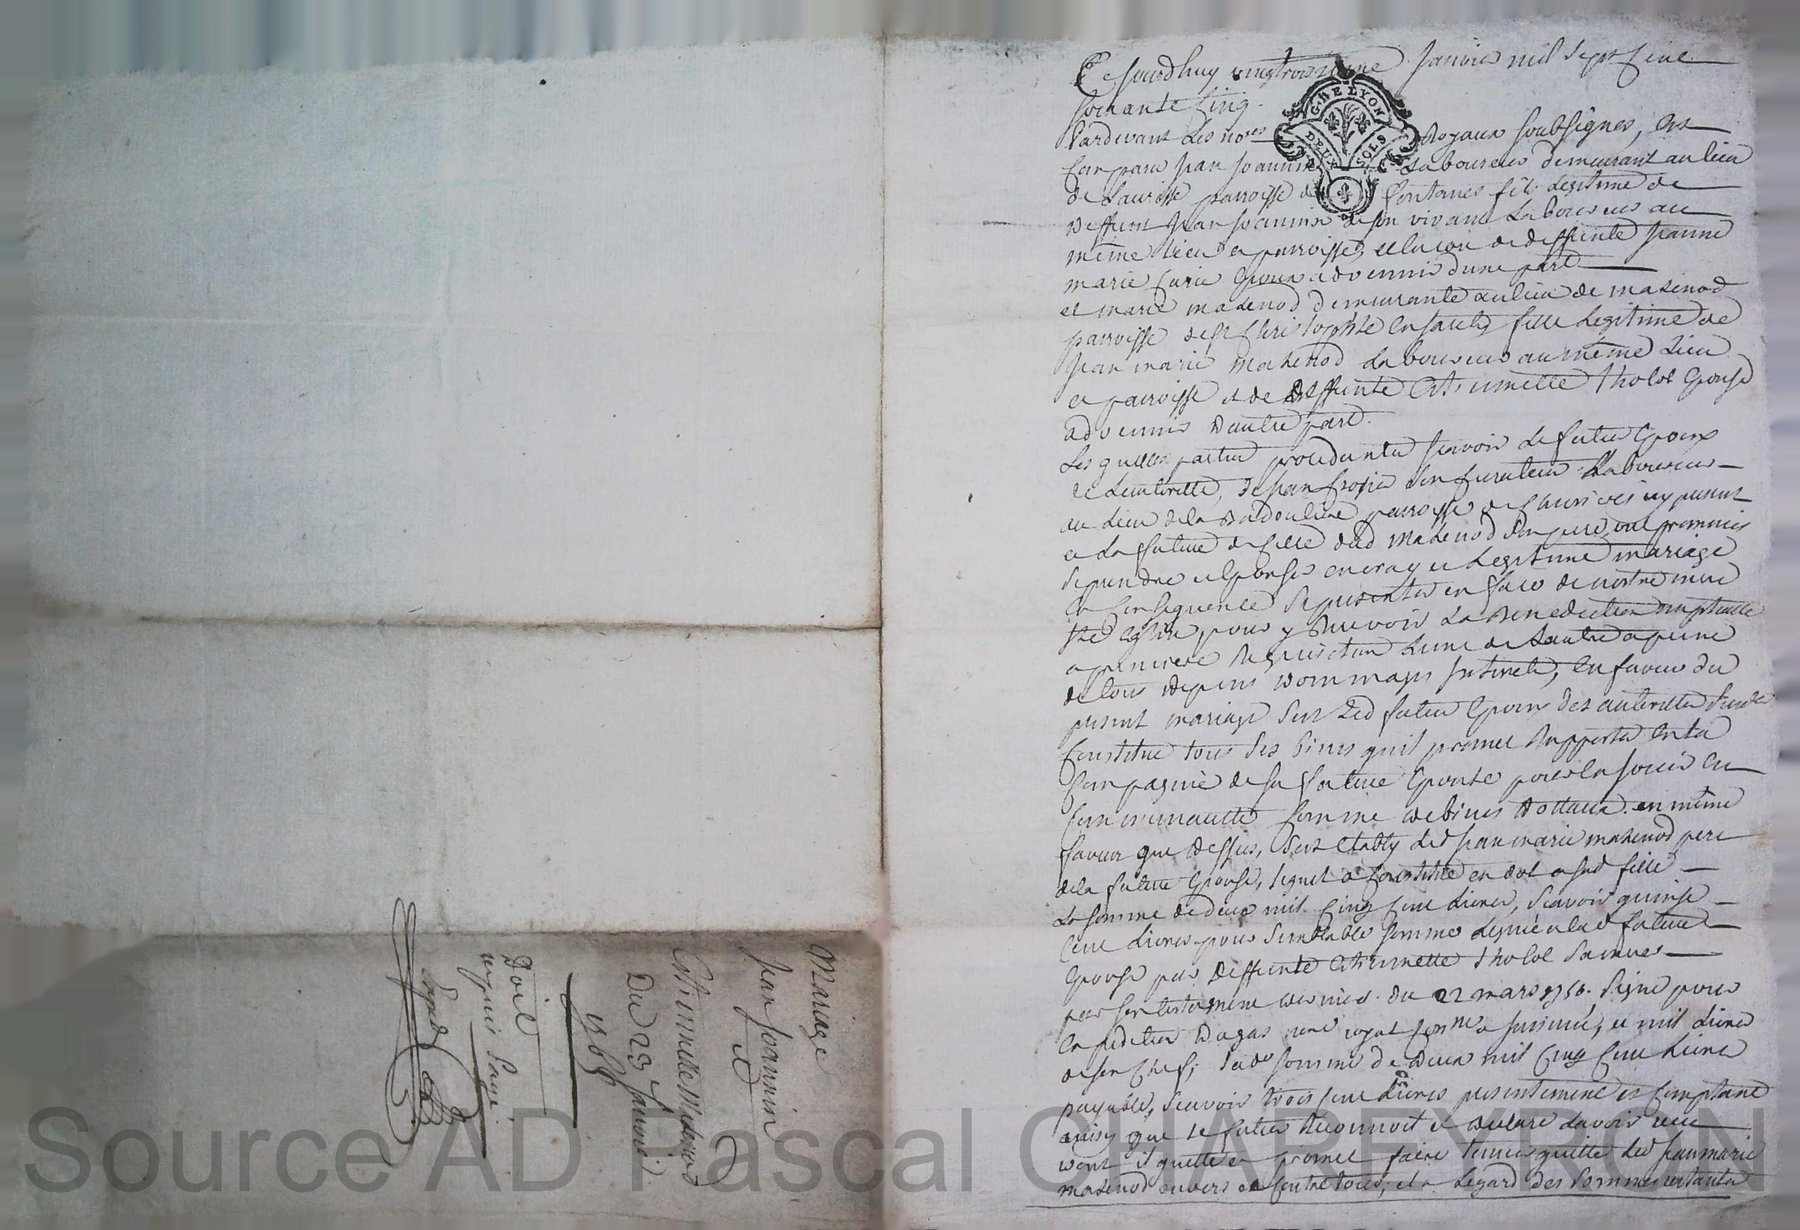 Ce jourdhuy vingtroisieme Janvier mil sept Cent
soixante Cinq.
Pardevant Les no.res Royaux soubsignes, est
GNRE LYON
DEUX SOLS
Comparu Jean Joannin Laboureur demeurant au lieu
de paroisse de Fontanes fils Legitime de
deffunt Jean Joannin de son vivant Laboureur au
même lieu et parroisse, et encore de deffunte Jeanne
marie Curie Epoux advenir d'une part
et marie mazenod demeurante au lieu de mazenod
parroisse de St Christophle En Jarets, fille Legitime de
Jean marie Mazenod Laboureur au même Lieu
et parroisse et de deffunte Estiennette Tholot Epouse
advenir dautre part.
Lesquelles parties procedantes scavoir Le futur Epoux
de Lautorité, de Jean son Curateur Laboureur
au Lieu de la parroisse de icy present
et La future de celle dud Mazenod son pere, ont promis
se prendre et Epouser en vray et Legitime mariage
En Consequence se presenter en face de nostre mere
Ste Eglise pour y recevoir La Benediction nuptialle
a premiere Requisition Lune de Lautre a peine
de tous depens dommages Interets, En faveur du
present mariage sest Led futur Epoux des autorités
Constitué tous ses biens quil promet Rapporter en la
Compagnie de sa future Epouse
Communauté comme de biens dottaux. en même
faveur que dessus, sest Etably led Jean marie mazenod pere
de la future Epouse, lequel a Constitué en dot a sad fille
La somme de deux mil Cinq Cent Livres, Scavoir quinse
Cent Livres pour semblable somme Leguée a lad future
Epouse par deffunte Estiennette Tholot sa mere
par son testament dernier du 22 mars 1756. Signé pour
Expedition Dugas no.re royal et mil Livres
de son Chef; Lad somme de deux mil Cinq Cent Livres
payable, Scavoir trois Cent Livres presentement et Comptant
ainsy que Le futur Reconnoit et declare Lavoir recu
dont il quitte et promet faire tenir quitte led Jean marie
mazenod envers et contre tous; et a Legard des sommes restantes
Mariage
Jean Joannin
et
Estiennette Mazenod
Du 23 Janvier
1765
Doit
Source AD Pascal CHAPEYRON